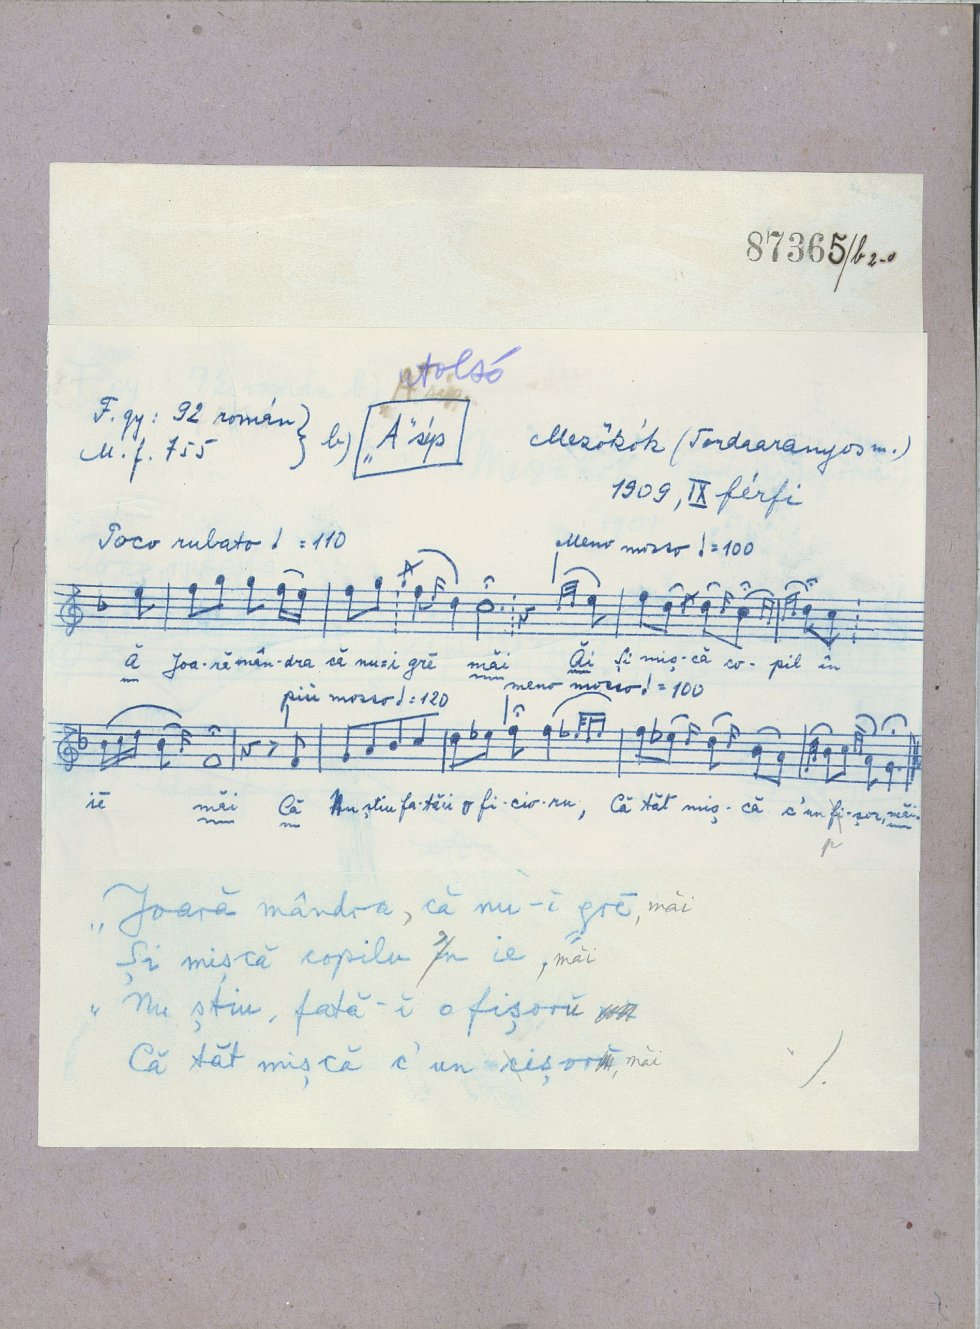 87365/b
utolsó
F. gy: 92 román
M. f. 755
b) „A" síp
Mezőkók (Tordaaranyos m.)
1909, IX férfi
Poco rubato ♩ = 110
Meno mosso ♩ = 100
Ă Joa-ră mân-dra că nu-i grē măi Ăi Și miș-că co-pil în
più mosso ♩ = 120 meno mosso ♩ = 100
iē măi Că Nu știu fa-tăi o fi-cio-ru, Că tăt miș-că c'un fi-șor, măi
p
„Joară mândra, că nu-i grē, măi
Și mișcă copilu 'n ie, măi
„Nu știu, fată-i o fișorŭ
Că tăt mișcă c'un măi